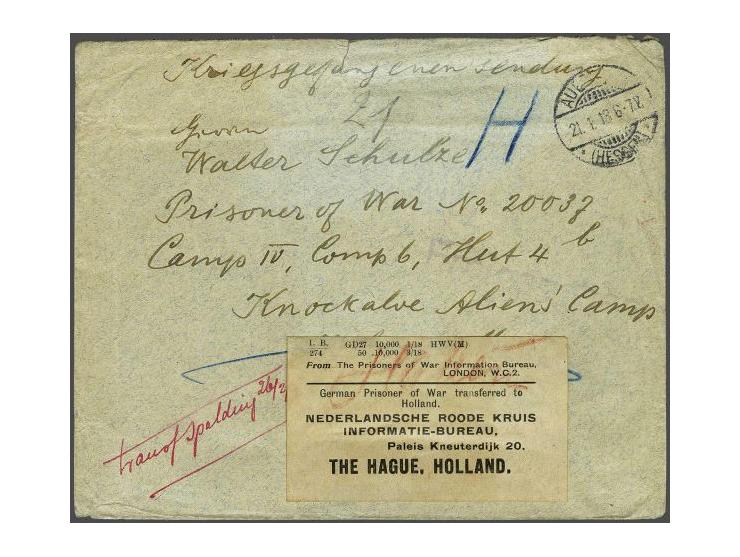 Kriegsgefangenensendung
21
H
Herrn
Walter Schulze
Prisoner of War No. 20037
Camp IV, Comp 6, Hut 4 b
Knockaloe Aliens' Camp
AUE
21. 1. 18. 6-7 N.
* (HESSEN) *
I. B. GD27 10,000 1/18 HWV(M)
274 50 10,000 3/18
From The Prisoners of War Information Bureau,
LONDON, W.C.2.
German Prisoner of War transferred to
Holland.
NEDERLANDSCHE ROODE KRUIS
INFORMATIE-BUREAU,
Paleis Kneuterdijk 20.
THE HAGUE, HOLLAND.
transf Spalding 26/2